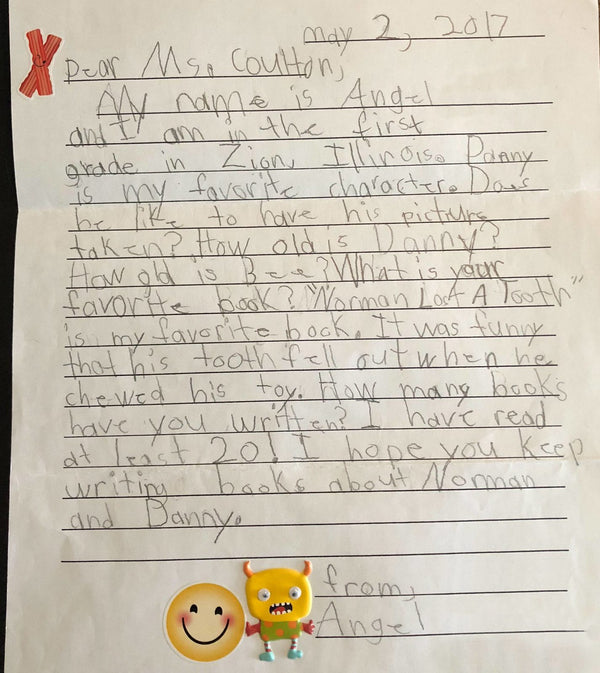 May 2, 2017
Dear Ms. Coulton,
My name is Angel
and I am in the first
grade in Zion, Illinois. Danny
is my favorite character. Does
he like to have his picture
taken? How old is Danny?
How old is Bee? What is your
favorite book? "Norman Lost A Tooth"
is my favorite book. It was funny
that his tooth fell out when he
chewed his toy. How many books
have you written? I have read
at least 20! I hope you keep
writing books about Norman
and Danny.
from,
Angel